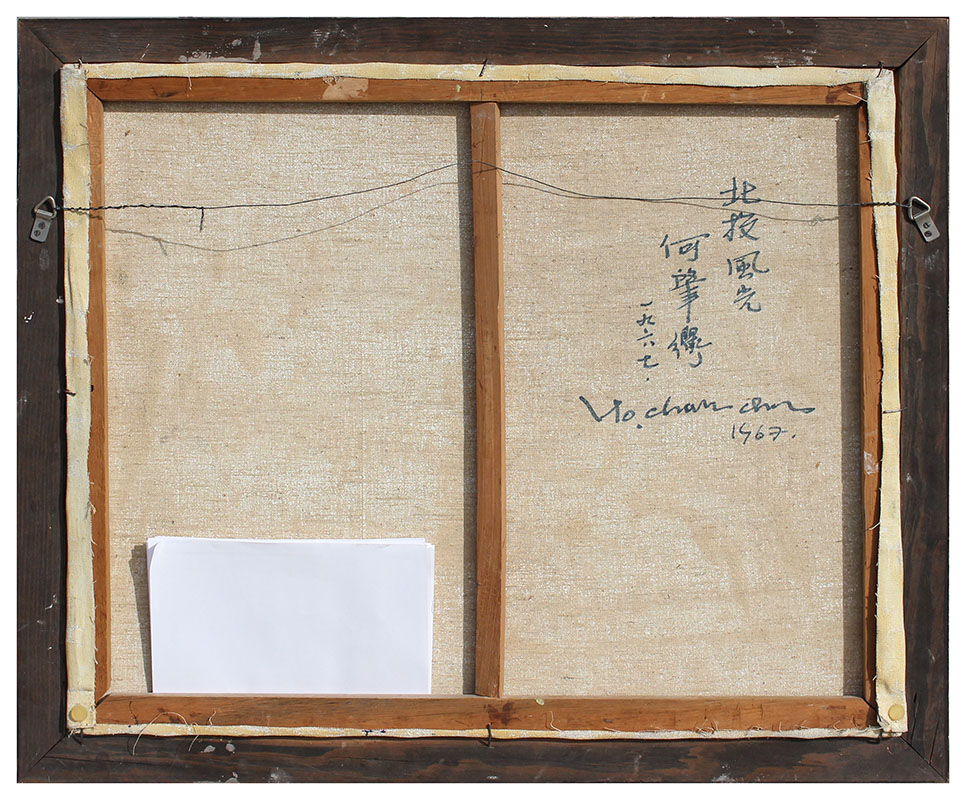 北投風光
何肇衢
一九六七.
Ho. chau chu
1967.